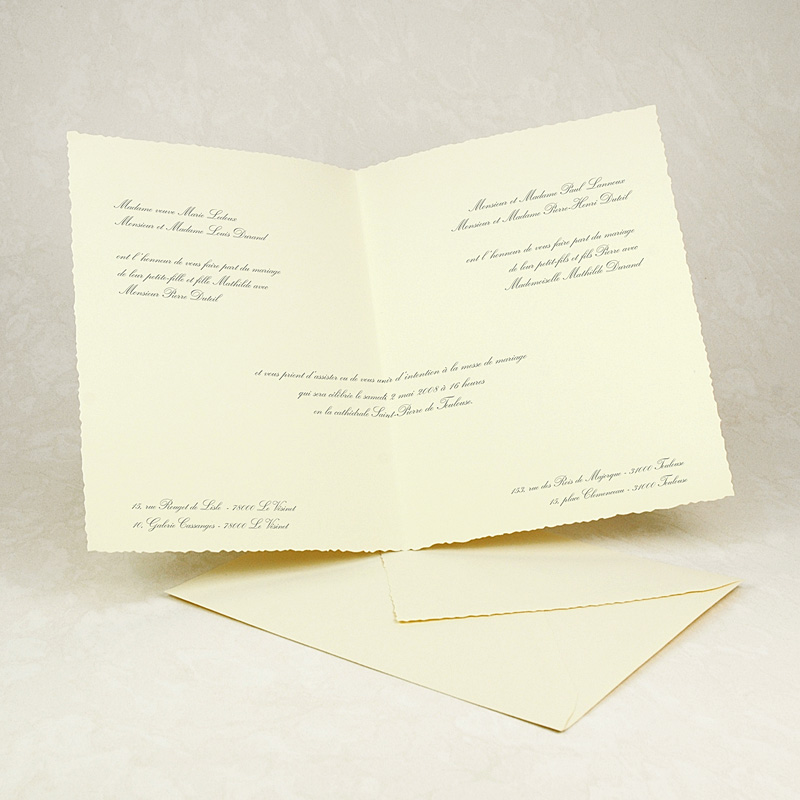 Madame veuve Marie Ledoux
Monsieur et Madame Louis Durand
ont l'honneur de vous faire part du mariage
de leur petite-fille et fille Mathilde avec
Monsieur Pierre Duteil
Monsieur et Madame Paul Lanneux
Monsieur et Madame Pierre-Henri Duteil
ont l'honneur de vous faire part du mariage
de leur petit-fils et fils Pierre avec
Mademoiselle Mathilde Durand
et vous prient d'assister ou de vous unir d'intention à la messe de mariage
qui sera célébrée le samedi 2 mai 2008 à 16 heures
en la cathédrale Saint-Pierre de Toulouse.
15, rue Rouget de Lisle - 78000 Le Vésinet
10, Galerie Cassanges - 78000 Le Vésinet
153, rue des Rois de Majorque - 31000 Toulouse
15, place Clemenceau - 31000 Toulouse